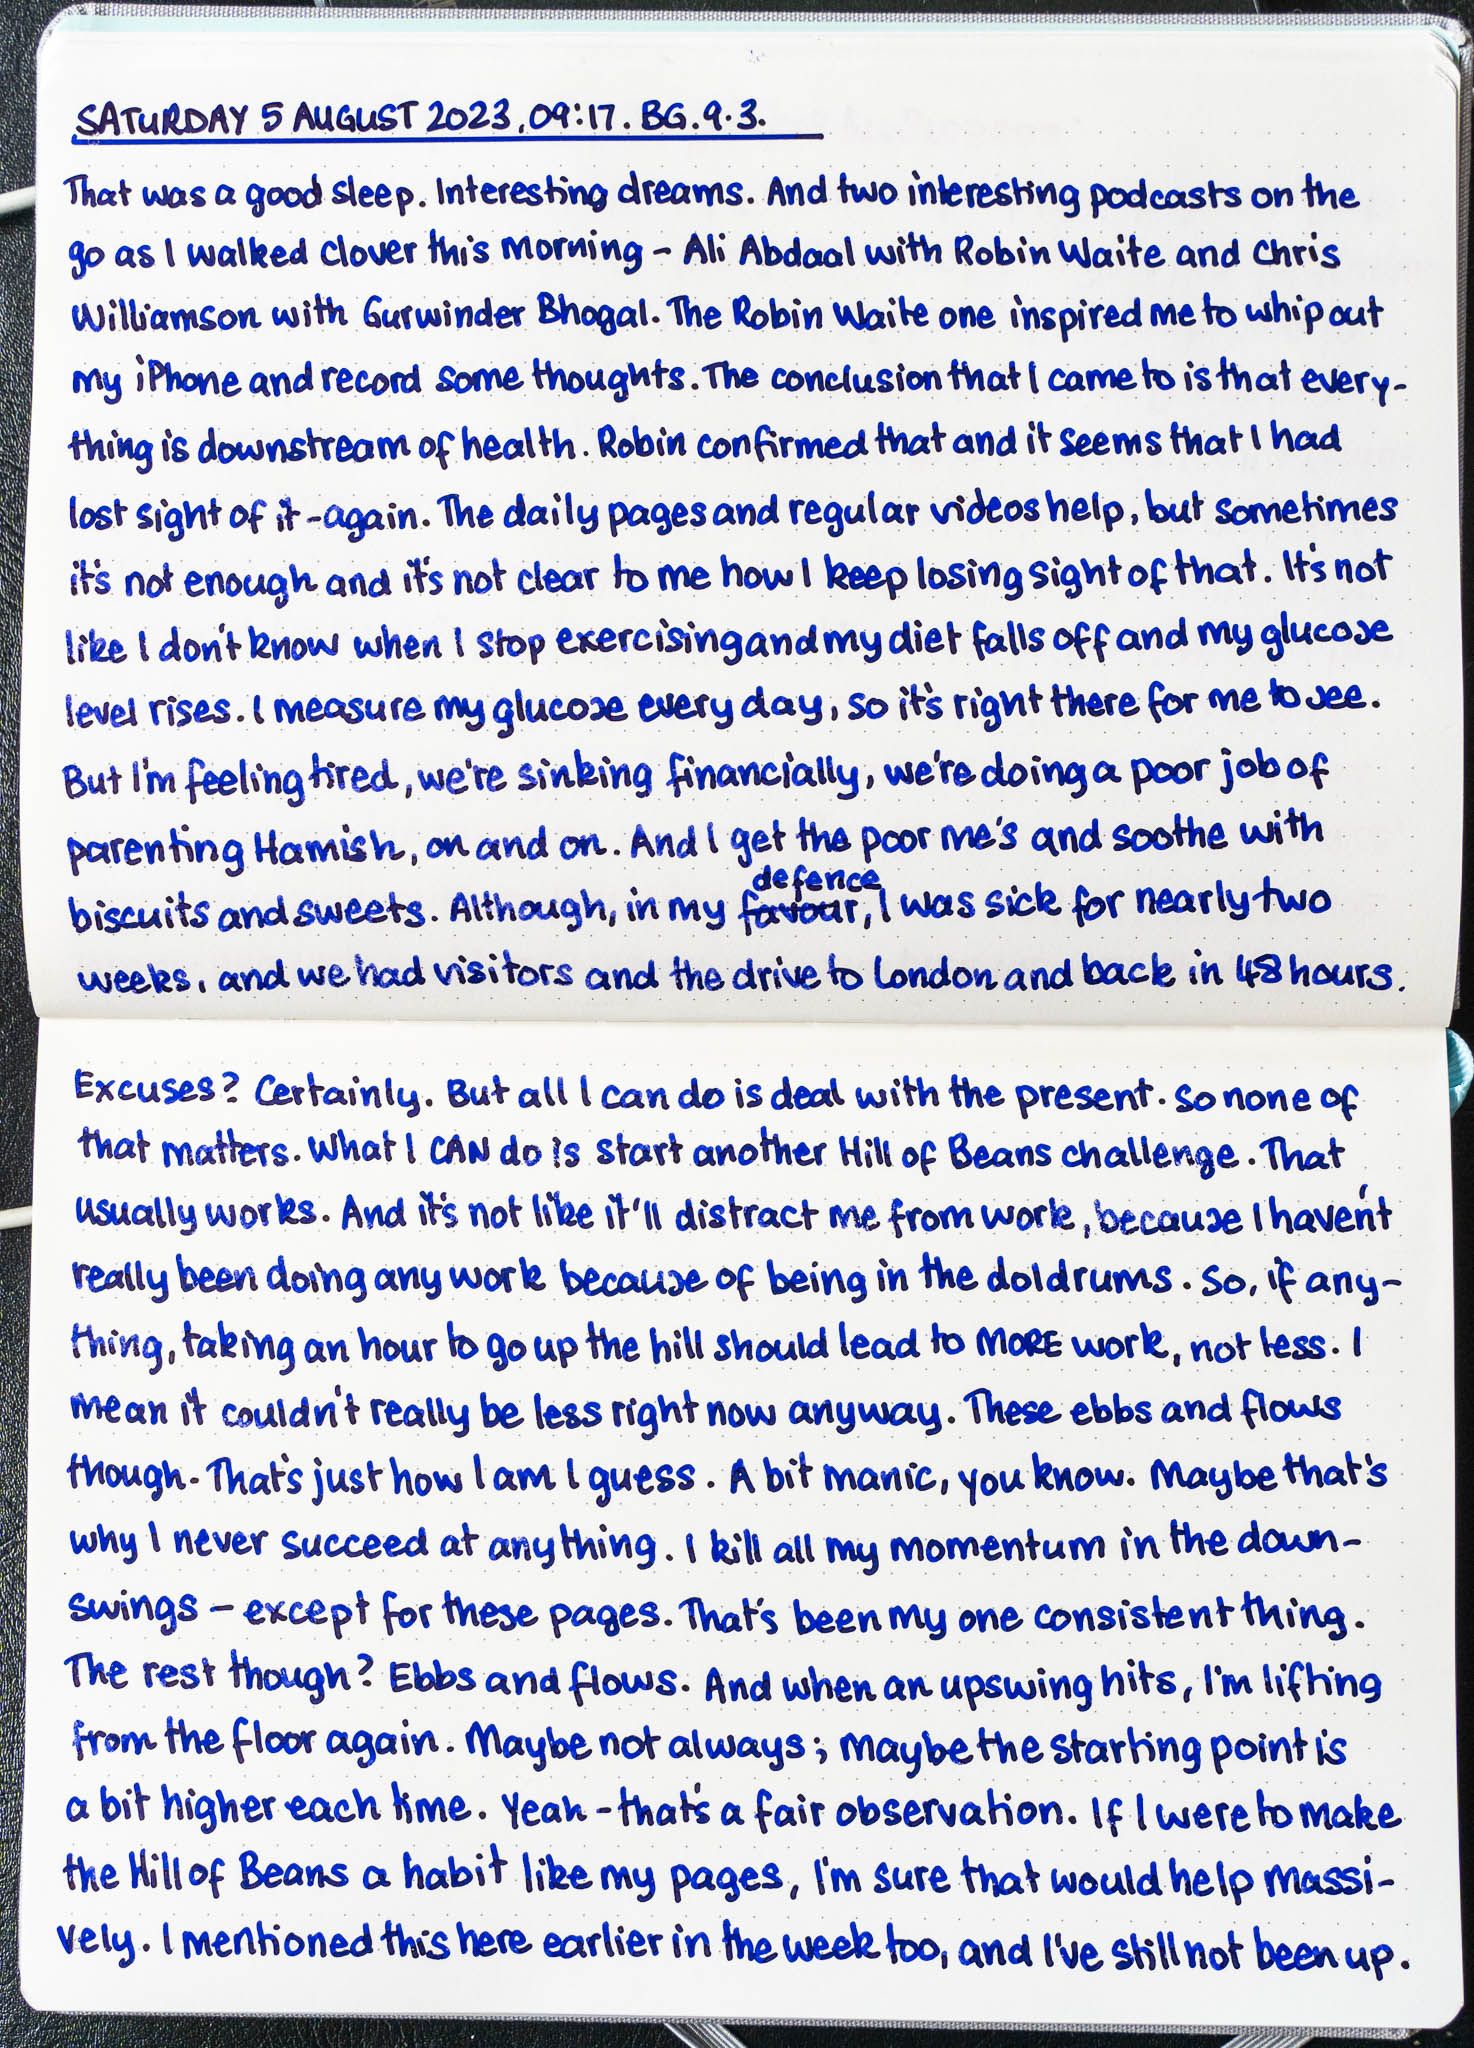 SATURDAY 5 AUGUST 2023, 09:17. BG. 9.3.
That was a good sleep. Interesting dreams. And two interesting podcasts on the
go as I walked Clover this morning – Ali Abdaal with Robin Waite and Chris
Williamson with Gurwinder Bhogal. The Robin Waite one inspired me to whip out
my iPhone and record some thoughts. The conclusion that I came to is that every-
thing is downstream of health. Robin confirmed that and it seems that I had
lost sight of it - again. The daily pages and regular videos help, but sometimes
it's not enough and it's not clear to me how I keep losing sight of that. It's not
like I don't know when I stop exercising and my diet falls off and my glucose
level rises. I measure my glucose every day, so it's right there for me to see.
But I'm feeling tired, we're sinking financially, we're doing a poor job of
parenting Hamish, on and on. And I get the poor me's and soothe with
defence
biscuits and sweets. Although, in my favour, I was sick for nearly two
weeks, and we had visitors and the drive to London and back in 48 hours.
Excuses? Certainly. But all I can do is deal with the present. So none of
that matters. What I CAN do is start another Hill of Beans challenge. That
usually works. And it's not like it'll distract me from work, because I haven't
really been doing any work because of being in the doldrums. So, if any-
thing, taking an hour to go up the hill should lead to MORE work, not less. I
mean it couldn't really be less right now anyway. These ebbs and flows
though. That's just how I am I guess. A bit manic, you know. Maybe that's
why I never succeed at anything. I kill all my momentum in the down-
swings – except for these pages. That's been my one consistent thing.
The rest though? Ebbs and flows. And when an upswing hits, I'm lifting
from the floor again. Maybe not always; maybe the starting point is
a bit higher each time. Yeah - that's a fair observation. If I were to make
the Hill of Beans a habit like my pages, I'm sure that would help massi-
vely. I mentioned this here earlier in the week too, and I've still not been up.